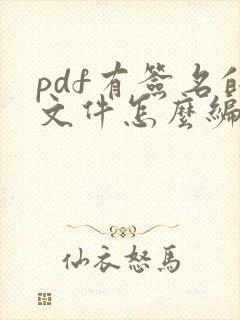 pdf有簽名的
文件怎麼編
仙衣怒馬